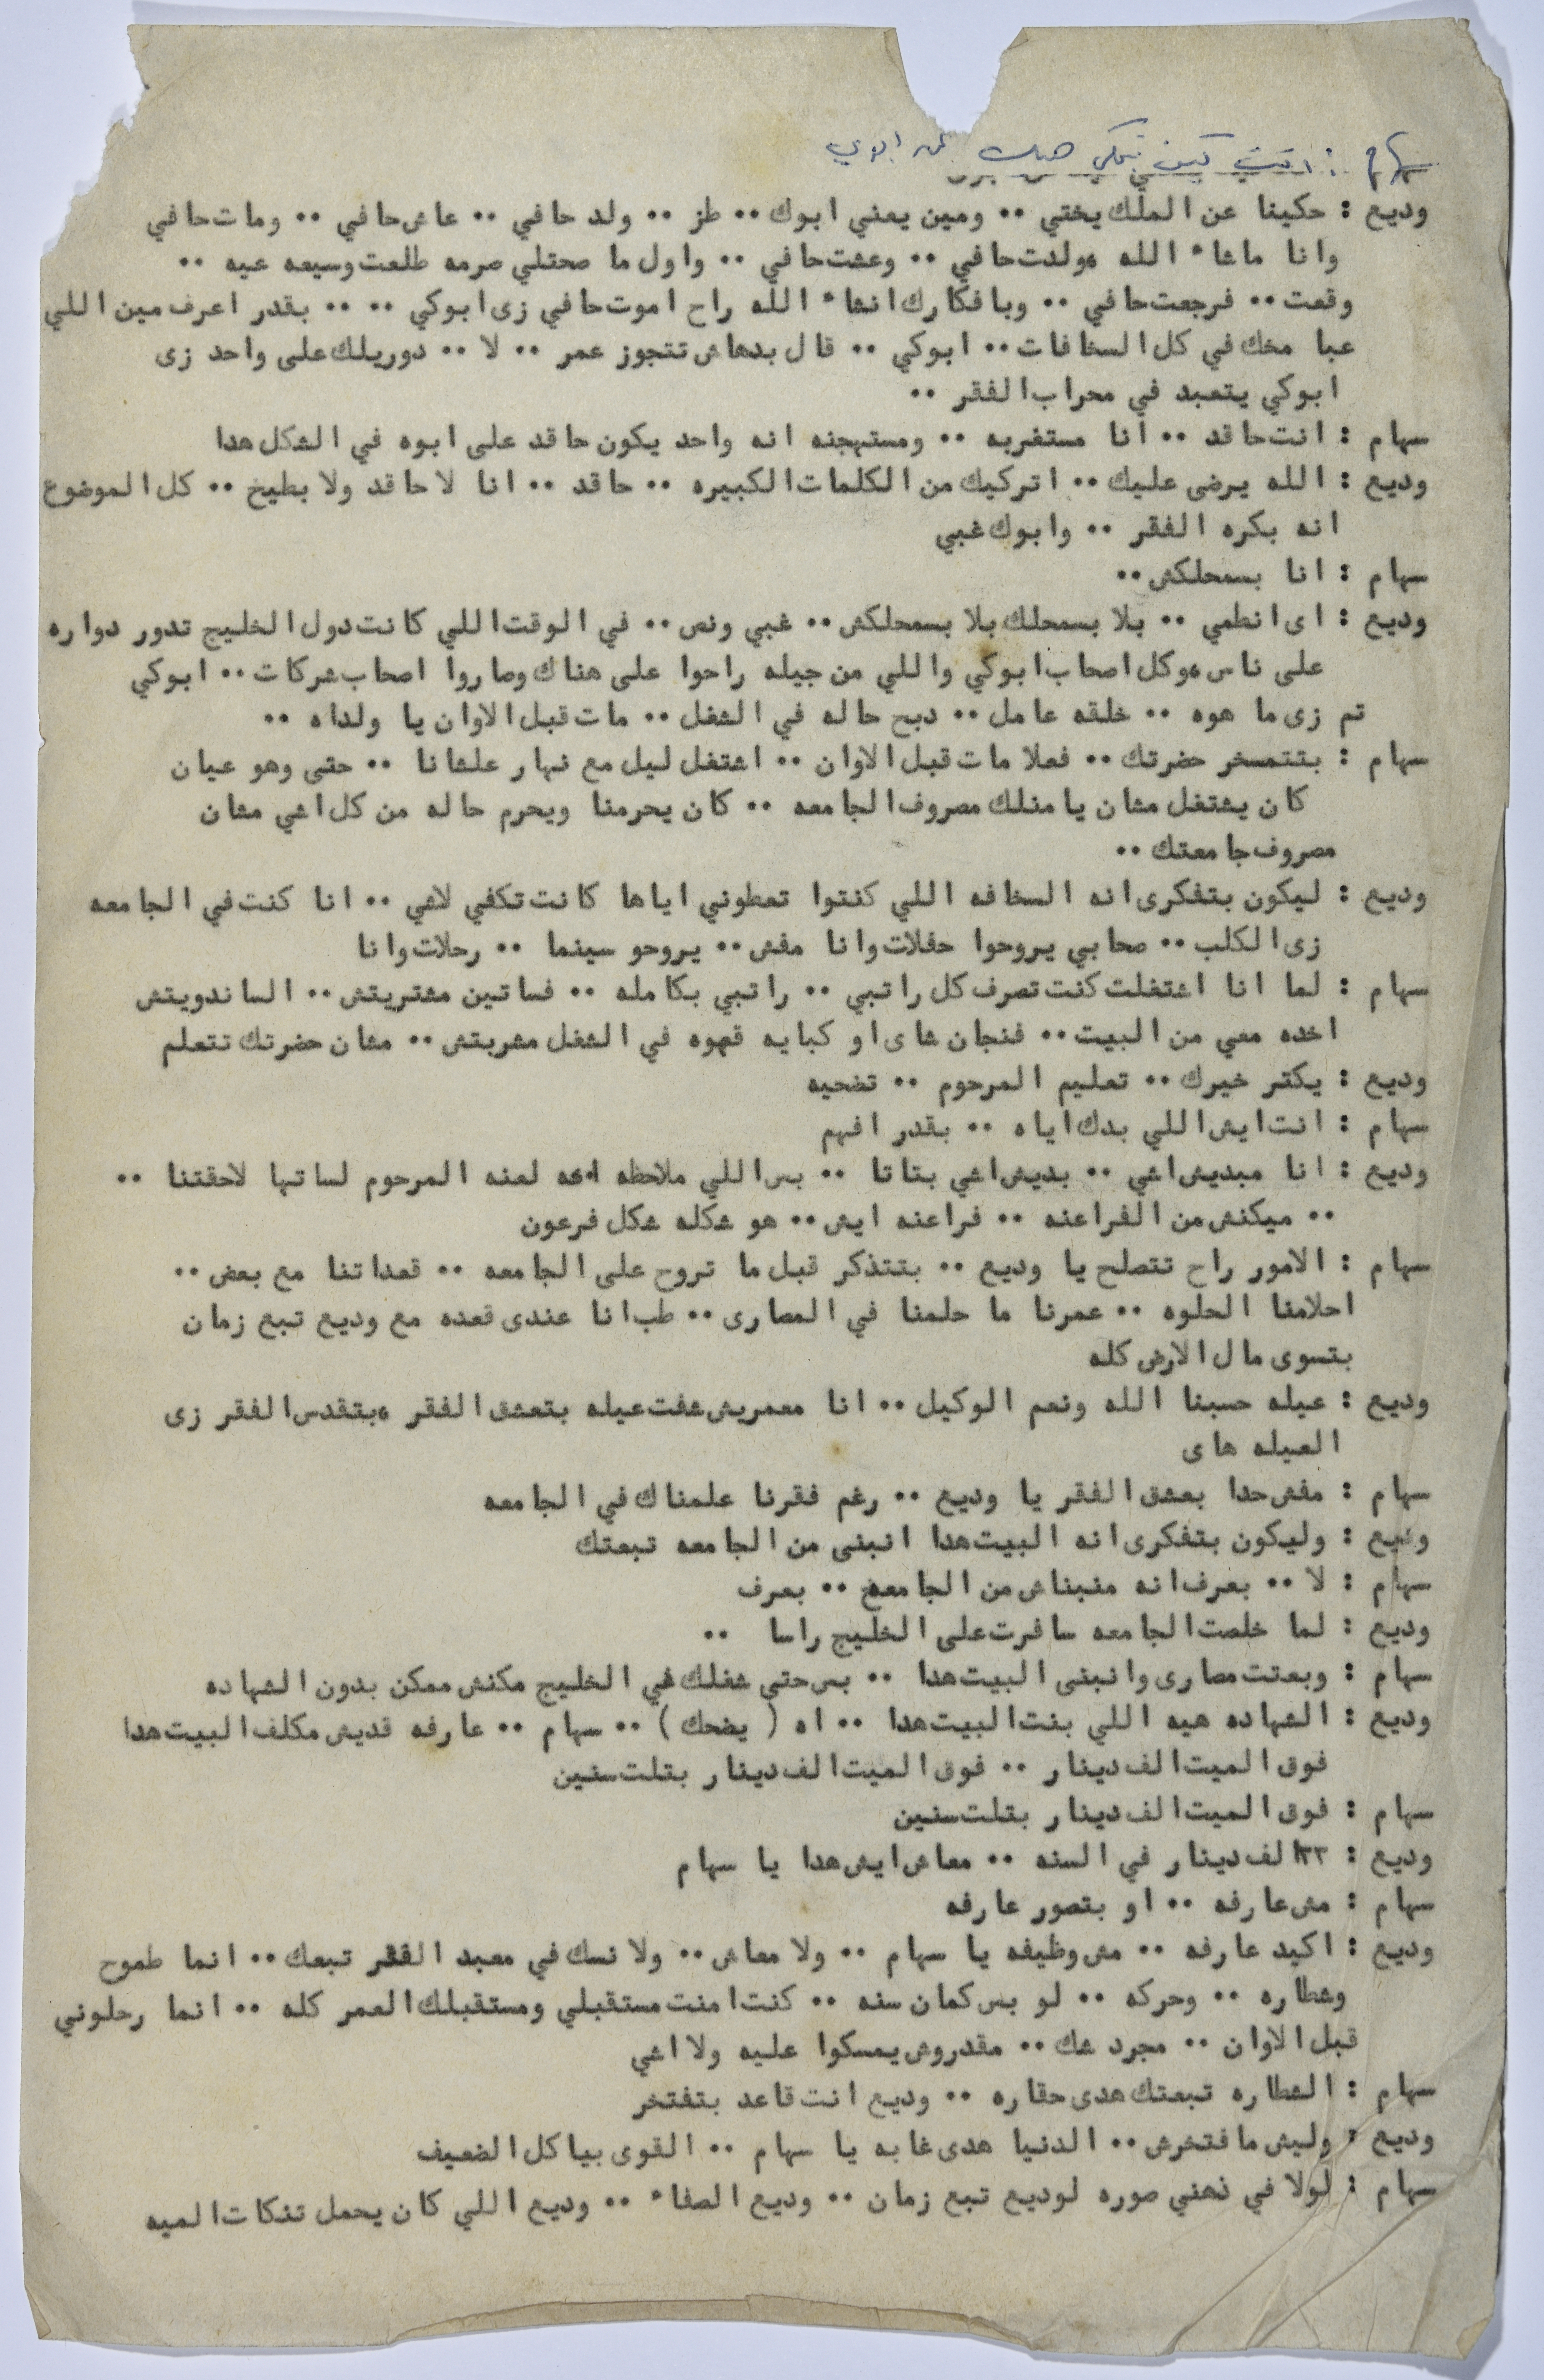 سهام : انت كيف بتحكي هيك عن ابوي
وديع : حكينا عن الملك يختي ٠٠ ومين يعني ابوك ٠٠ طز ٠٠ ولد حافي ٠٠ عاش حافي ٠٠ ومات حافي
وانا ماشاء الله ولدت حافي ٠٠ وعشت حافي ٠٠ واول ما صحتلي صرمه طلعت وسيعه عيه ٠٠
وقعت ٠٠ فرجعت حافي ٠٠ وبافكارك انشاء الله راح اموت حافي زى ابوكي ٠٠ ٠٠ بقدر اعرف مين اللي
عبا مخك في كل السخافات ٠٠ ابوكي ٠٠ قال بدهاش تتجوز عمر ٠٠ لا ٠٠ دوريلك على واحد زى
ابوكي يتعبد في محراب الفقر ٠٠
سهام : انت حاقد ٠٠ انا مستغربه ٠٠ ومستهجنه انه واحد يكون حاقد على ابوه في الشكل هدا
وديع : الله يرضى عليك ٠٠ اتركيك من الكلمات الكبيره ٠٠ حاقد ٠٠ انا لا حاقد ولا بطيخ ٠٠ كل الموضوع
انه بكره الفقر ٠٠ وابوك غبي
سهام : انا بسمحلكش ٠٠
وديع : اى انطمي ٠٠ بلا بسمحلك بلا بسمحلكش ٠٠ غبي ونص ٠٠ في الوقت اللي كانت دول الخليج تدور دواره
على ناس وكل اصحاب ابوكي واللي من جيله راحوا على هناك وصاروا اصحاب شركات ٠٠ ابوكي
تم زى ما هوه ٠٠ خلقه عامل ٠٠ دبح حاله في الشغل ٠٠ مات قبل الاوان يا ولداه ٠٠
سهام : بتتمسخر حضرتك ٠٠ فعلا مات قبل الاوان ٠٠ اشتغل ليل مع نهار علشانا ٠٠ حتى وهو عيان
كان يشتغل مشان يامنلك مصروف الجامعه ٠٠ كان يحرمنا ويحرم حاله من كل اشي مشان
مصروف جامعتك ٠٠
وديع : ليكون بتفكرى انه السخافه اللي كنتوا تعطوني اياها كانت تكفي لاشي ٠٠ انا كنت في الجامعه
زى الكلب ٠٠ صحابي يروحوا حفلات وانا مفش ٠٠ يروحو سينما ٠٠ رحلات وانا
سهام : لما انا اشتغلت كنت تصرف كل راتبي ٠٠ راتبي بكامله ٠٠ فساتين مشتريتش ٠٠ الساندويتش
اخده معي من البيت ٠٠ فنجان شاى او كبايه قهوه في الشغل مشربتش ٠٠ مشان حضرتك تتعلم
وديع : يكتر خيرك ٠٠ تعليم المرحوم ٠٠ تضحيه
سهام : انت ايش اللي بدك اياه ٠٠ بقدر افهم
وديع : انا مبديش اشي ٠٠ بديش اشي بتاتا ٠٠ بس اللي ملاحظه انه لعنه المرحوم لساتها لاحقتنا ٠٠
٠٠ ميكنش من الفراعنه ٠٠ فراعنه ايش ٠٠ هو شكله شكل فرعون
سهام : الامور راح تتصلح يا وديع ٠٠ بتتذكر قبل ما تروح على الجامعه ٠٠ قعداتنا مع بعض ٠٠
احلامنا الحلوه ٠٠ عمرنا ما حلمنا في المصارى ٠٠ طب انا عندى قعده مع وديع تبع زمان
بتسوى مال الارض كله
وديع : عيله حسبنا الله ونعم الوكيل ٠٠ انا معمريش شفت عيله بتعشق الفقر وبتقدس الفقر زى
العيله هاى
سهام : مفش حدا بعشق الفقر يا وديع ٠٠ رغم فقرنا علمناك في الجامعه
وديع : وليكون بتفكرى انه البيت هدا انبنى من الجامعه تبعتك
سهام : لا ٠٠ بعرف انه منبناش من الجامعه ٠٠ بعرف
وديع : لما خلصت الجامعه سافرت على الخليج راسا ٠٠
سهام : وبعتت مصارى وانبنى البيت هدا ٠٠ بس حتى شغلك في الخليج مكنش ممكن بدون الشهاده
وديع : الشهاده هيه اللي بنت البيت هدا ٠٠ اه ( يضحك ) ٠٠ سهام ٠٠ عارفه قديش مكلف البيت هدا
فوق الميت الف دينار ٠٠ فوق الميت الف دينار بتلت سنين
سهام : فوق الميت الف دينار بتلت سنين
وديع : ٣٣ الف دينار في السنه ٠٠ معاش ايش هدا يا سهام
سهام : مش عارفه ٠٠ او بتصور عارفه
وديع : اكيد عارفه ٠٠ مش وظيفه يا سهام ٠٠ ولا معاش ٠٠ ولا نسك في معبد الفقر تبعك ٠٠ انما طموح
وشطاره ٠٠ وحركه ٠٠ لو بس كمان سنه ٠٠ كنت امنت مستقبلي ومستقبلك العمر كله ٠٠ انما رحلوني
قبل الاوان ٠٠ مجرد شك ٠٠ مقدروش يمسكوا عليه ولا اشي
سهام : الشطاره تبعتك هدى حقاره ٠٠ وديع انت قاعد بتفتخر
وديع : وليش مافتخرش ٠٠ الدنيا هدى غابه يا سهام ٠٠ القوى بياكل الضعيف
سهام : لولا في ذهني صوره لوديع تبع زمان ٠٠ وديع الصفاء ٠٠ وديع اللي كان يحمل تنكات الميه